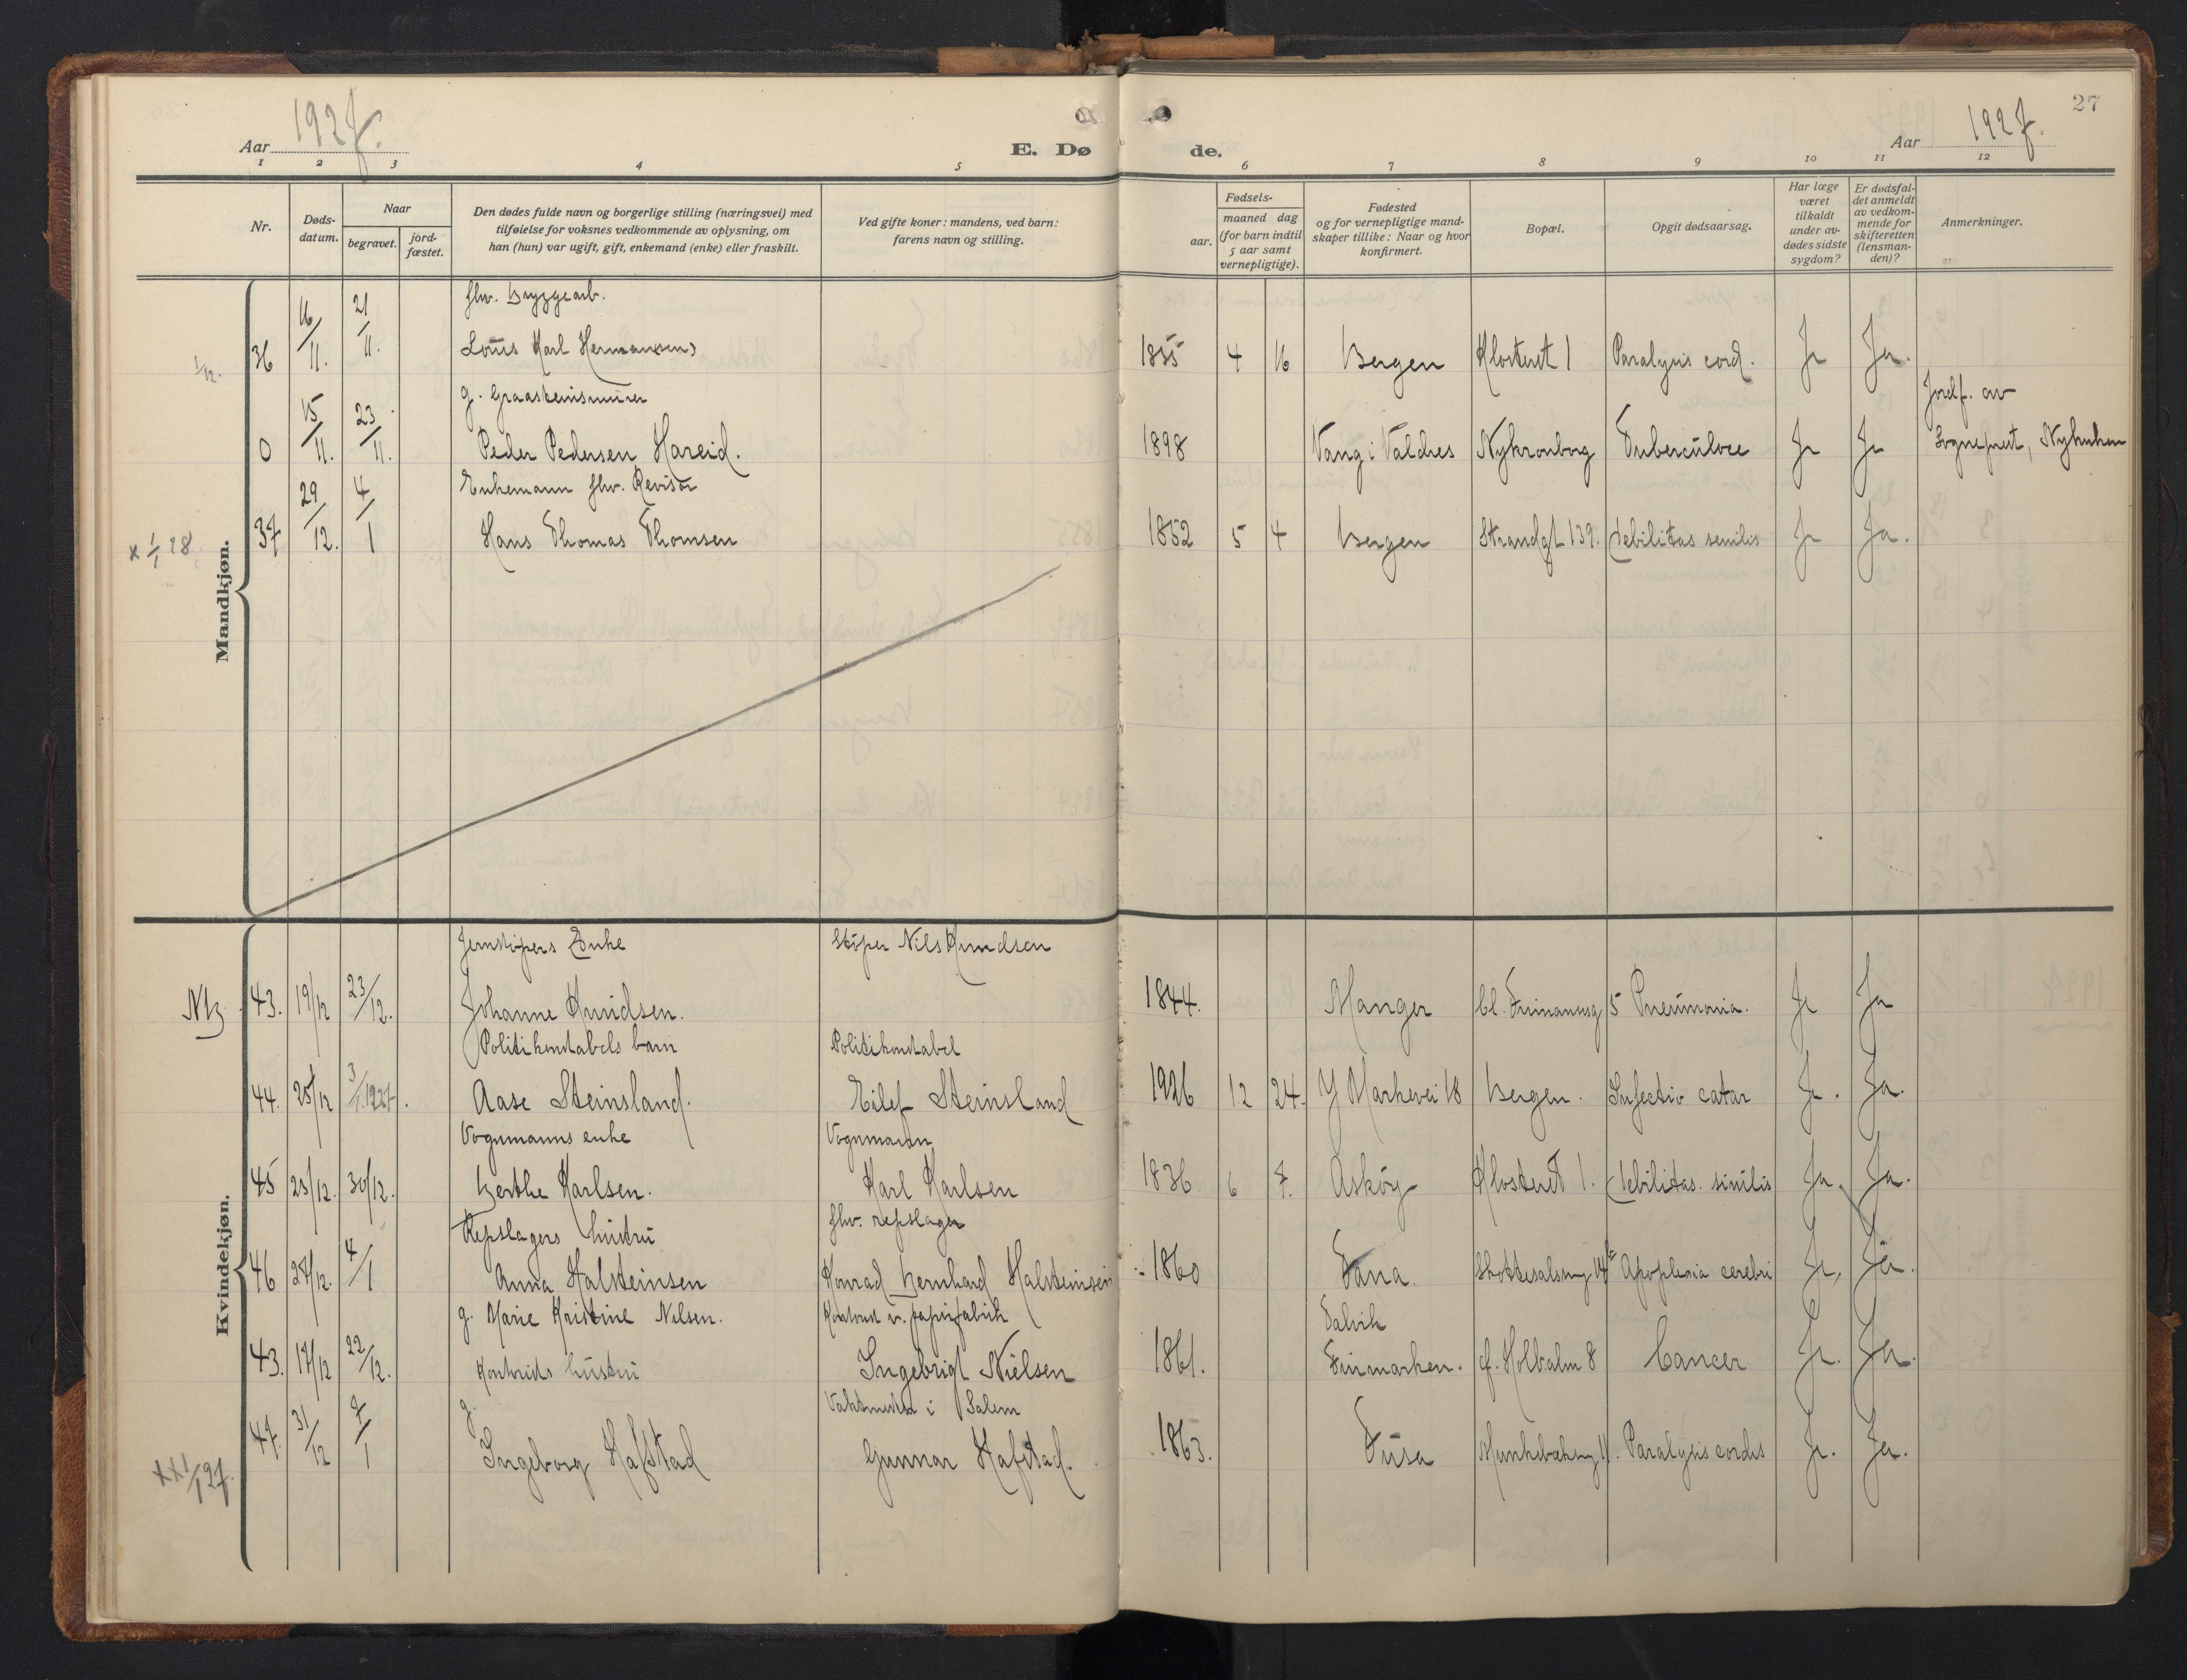 1927.
Aar
E. Dø
de.
Aar
1927.
27
1 2 3 4 5 6 7 8 9 10 11 12
Nr.
Døds-
datum.
Naar
begravet.
jord-
fæstet.
Den dødes fulde navn og borgerlige stilling (næringsvei) med
tilføielse for voksnes vedkommende av oplysning, om
han (hun) var ugift, gift, enkemand (enke) eller fraskilt.
Ved gifte koner: mandens, ved barn:
farens navn og stilling.
aar.
Fødsels-
maaned dag
(for barn indtil
5 aar samt
vernepligtige).
Fødested
og for vernepligtige mand-
skaper tillike: Naar og hvor
konfirmert.
Bopæl.
Opgit dødsaarsag.
Har læge
været
tilkaldt
under av-
dødes sidste
sygdom?
Er dødsfal-
det anmeldt
av vedkom-
mende for
skifteretten
(lensman-
den)?
Anmerkninger.
Mandkjøn.
fhv. Bryggearb.
1/12. 36 16/11. 21/11. Louis Karl Hermansen 1855 4 16 Bergen Klosteret 1 Paralysis cord. Ja Ja.
g. Graasteinsmurer
Jordf. av
0 15/11. 23/11. Peder Pedersen Hareid. 1898 Vang i Valdres Nykronborg Tuberculose Ja Ja Sogneprest, Nykirken
Enkemann fhv. Revisor
x 1/1 28 37 29/12. 4/1 Hans Thomas Thomsen 1852 5 4 Bergen Strandgt 139. debilitas senilis Ja Ja.
Kvindekjøn.
Jernstøpers Enke Støper Nils Knudsen
43. 19/12 23/12. Johanne Knudsen. 1844. Manger 5 Pneumonia. Ja Ja
Politikonstabels barn Politikonstabel
44. 25/12 3/1.1927. Aase Steinsland. Eilef Steinsland 1926 12 24. Y Markevei 18 Bergen. Infectio catar Ja. Ja.
Vognmanns enke Vognmann
45 25/12. 30/12. Berthe Karlsen. Karl Karlsen 1836 6 7. Askøy Klosteret 1. debilitas. sinilis Ja. Ja.
Repslagers hustru fhv. repslager
46 27/12. 4/1 Anna Halsteinsen Konrad Bernhard Halsteinsen 1860 Fana. Apoplexia cerebri Ja, Ja.
g. Marie Kristine Nilsen. papirfabrik Talvik
43. 17/12 22/12. hustru Ingebrigt Nielsen 1861. Finmarken. 8 Cancer Ja. Ja.
g. Vaktmester i Salem
xx 1/1 27. 47. 31/12 7/1 Ingeborg Hafstad Gunnar Hafstad. 1863. Fusa Paralysis cordis Ja. Ja.